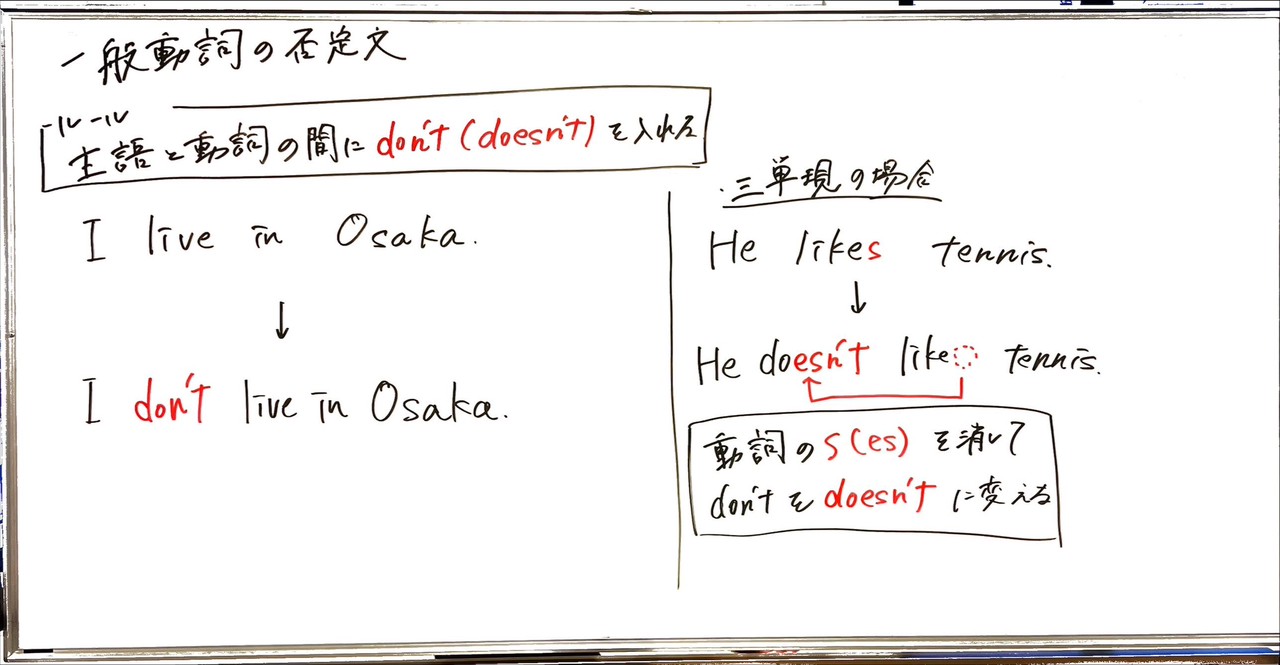 一般動詞の否定文
ルール
主語と動詞の間に don't (doesn't) を入れる
I live in Osaka.
↓
I don't live in Osaka.
・三単現の場合
He likes tennis.
↓
He doesn't like tennis.
動詞のs(es)を消して
don'tをdoesn'tに変える